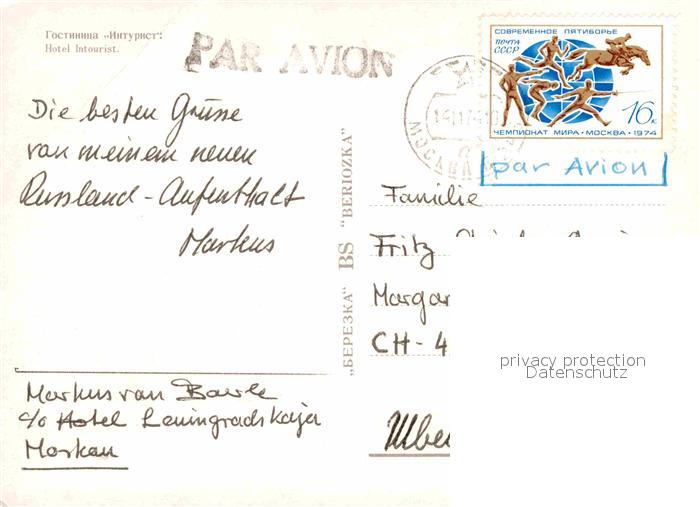 Гостиница „Интурист“:
Hotel Intourist.
PAR AVION
СОВРЕМЕННОЕ ПЯТИБОРЬЕ
ПОЧТА
СССР
16к
ЧЕМПИОНАТ МИРА • МОСКВА • 1974
МОСКВА
par Avion
Die besten Grüsse
von meinem neuen
Russland-Aufenthalt
Markus
„БЕРЕЗКА“ BS "BERIOZKA"
Familie
Fritz
Margar
CH-4
privacy protection
Datenschutz
Markus van
c/o Hotel Leningradskaja
Moskau